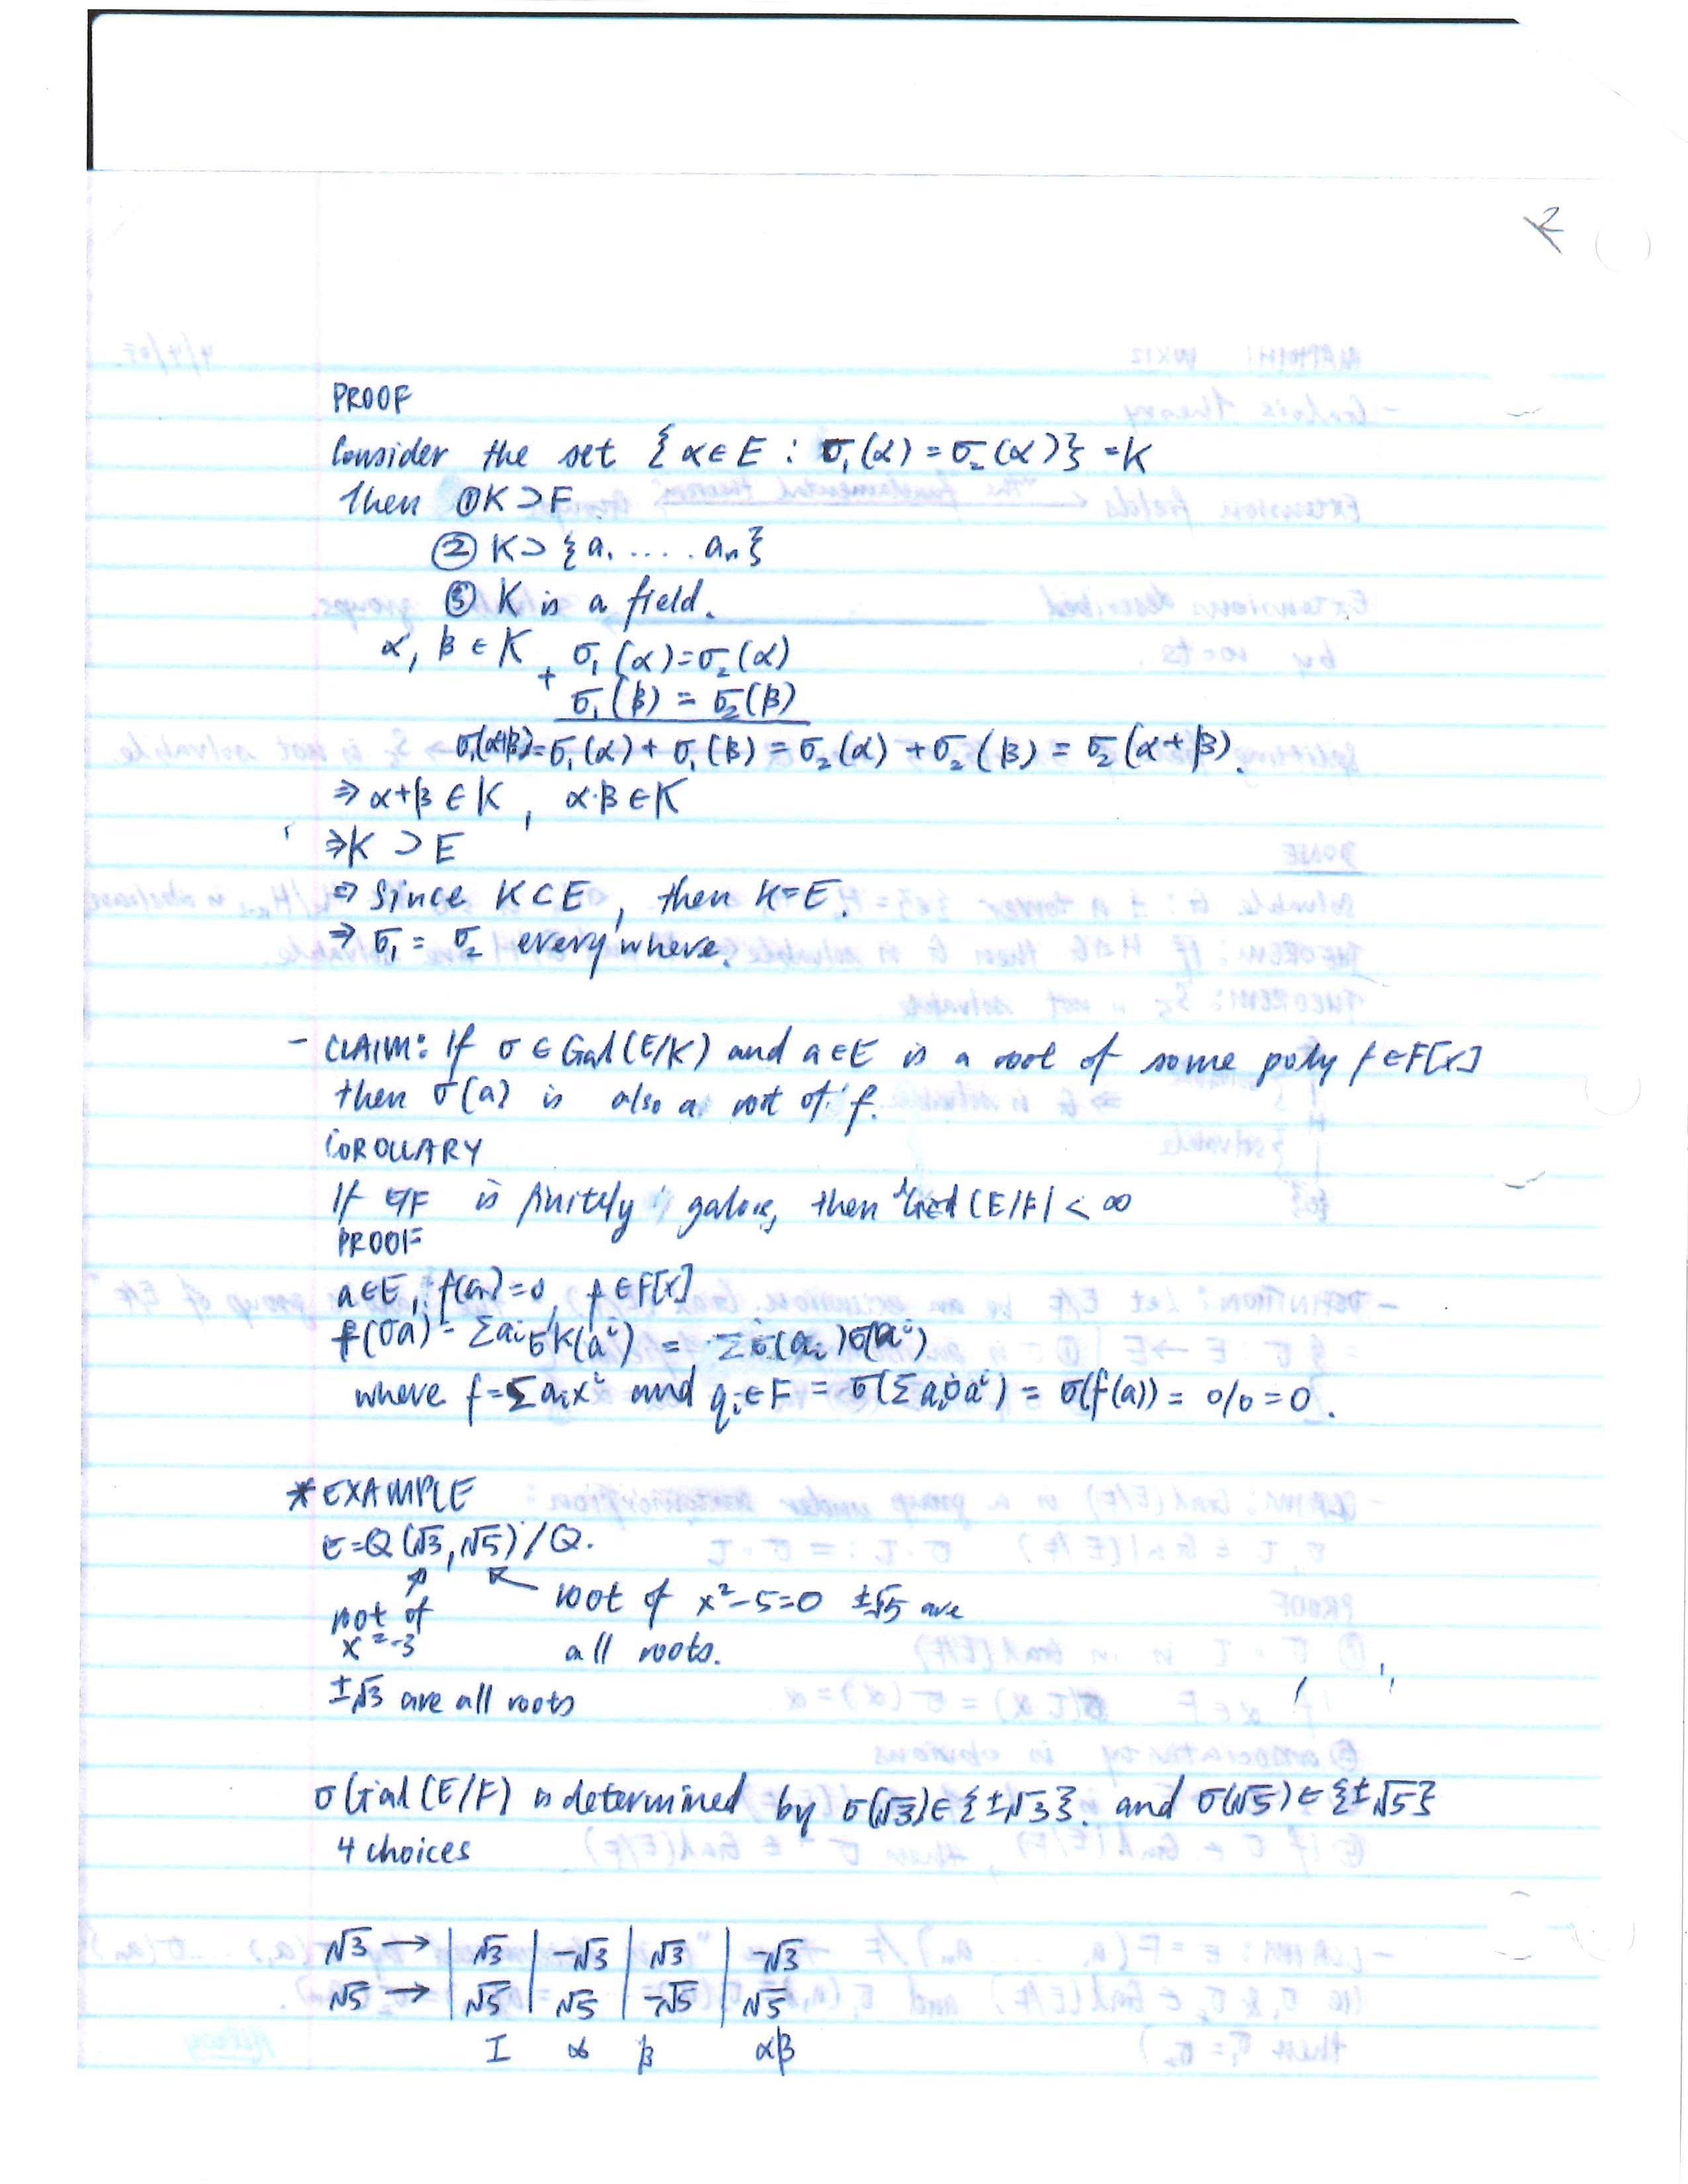 2
PROOF
Consider the set { α ∈ E : σ₁(α) = σ₂(α)} = K
Then ① K ⊃ F
② K ⊃ {a₁ ..... aₙ}
③ K is a field.
α, β ∈ K , σ₁(α) = σ₂(α)
+ σ₁(β) = σ₂(β)
σ₁(α+β) = σ₁(α) + σ₁(β) = σ₂(α) + σ₂(β) = σ₂(α+β).
⇒ α+β ∈ K , α·β ∈ K
⇒ K ⊃ E
⇒ Since K ⊂ E, then K = E.
⇒ σ₁ = σ₂ everywhere.
- CLAIM: If σ ∈ Gal(E/K) and a ∈ E is a root of some poly f ∈ F[x]
then σ(a) is also a root of f.
COROLLARY
If E/F is finitely galois, then |Gal(E/F| < ∞
PROOF
a ∈ E, f(a) = 0, f ∈ F[x]
f(σa) = Σaᵢ (aⁱ) = Σ σ(aᵢ)σ(aⁱ)
where f = Σaᵢxⁱ and aᵢ ∈ F = σ(Σ aᵢ aⁱ) = σ(f(a)) = = 0.
* EXAMPLE
E = Q(√3, √5)/Q.
root of x²-5=0 ±√5 are
all roots.
root of
x²-3
±√3 are all roots
σ Gal(E/F) is determined by σ(√3) ∈ {±√3}. and σ(√5) ∈ {±√5}
4 choices
√3 → | √3 | -√3 | √3 | -√3
√5 → | √5 | √5 | -√5 | √5
I α β αβ